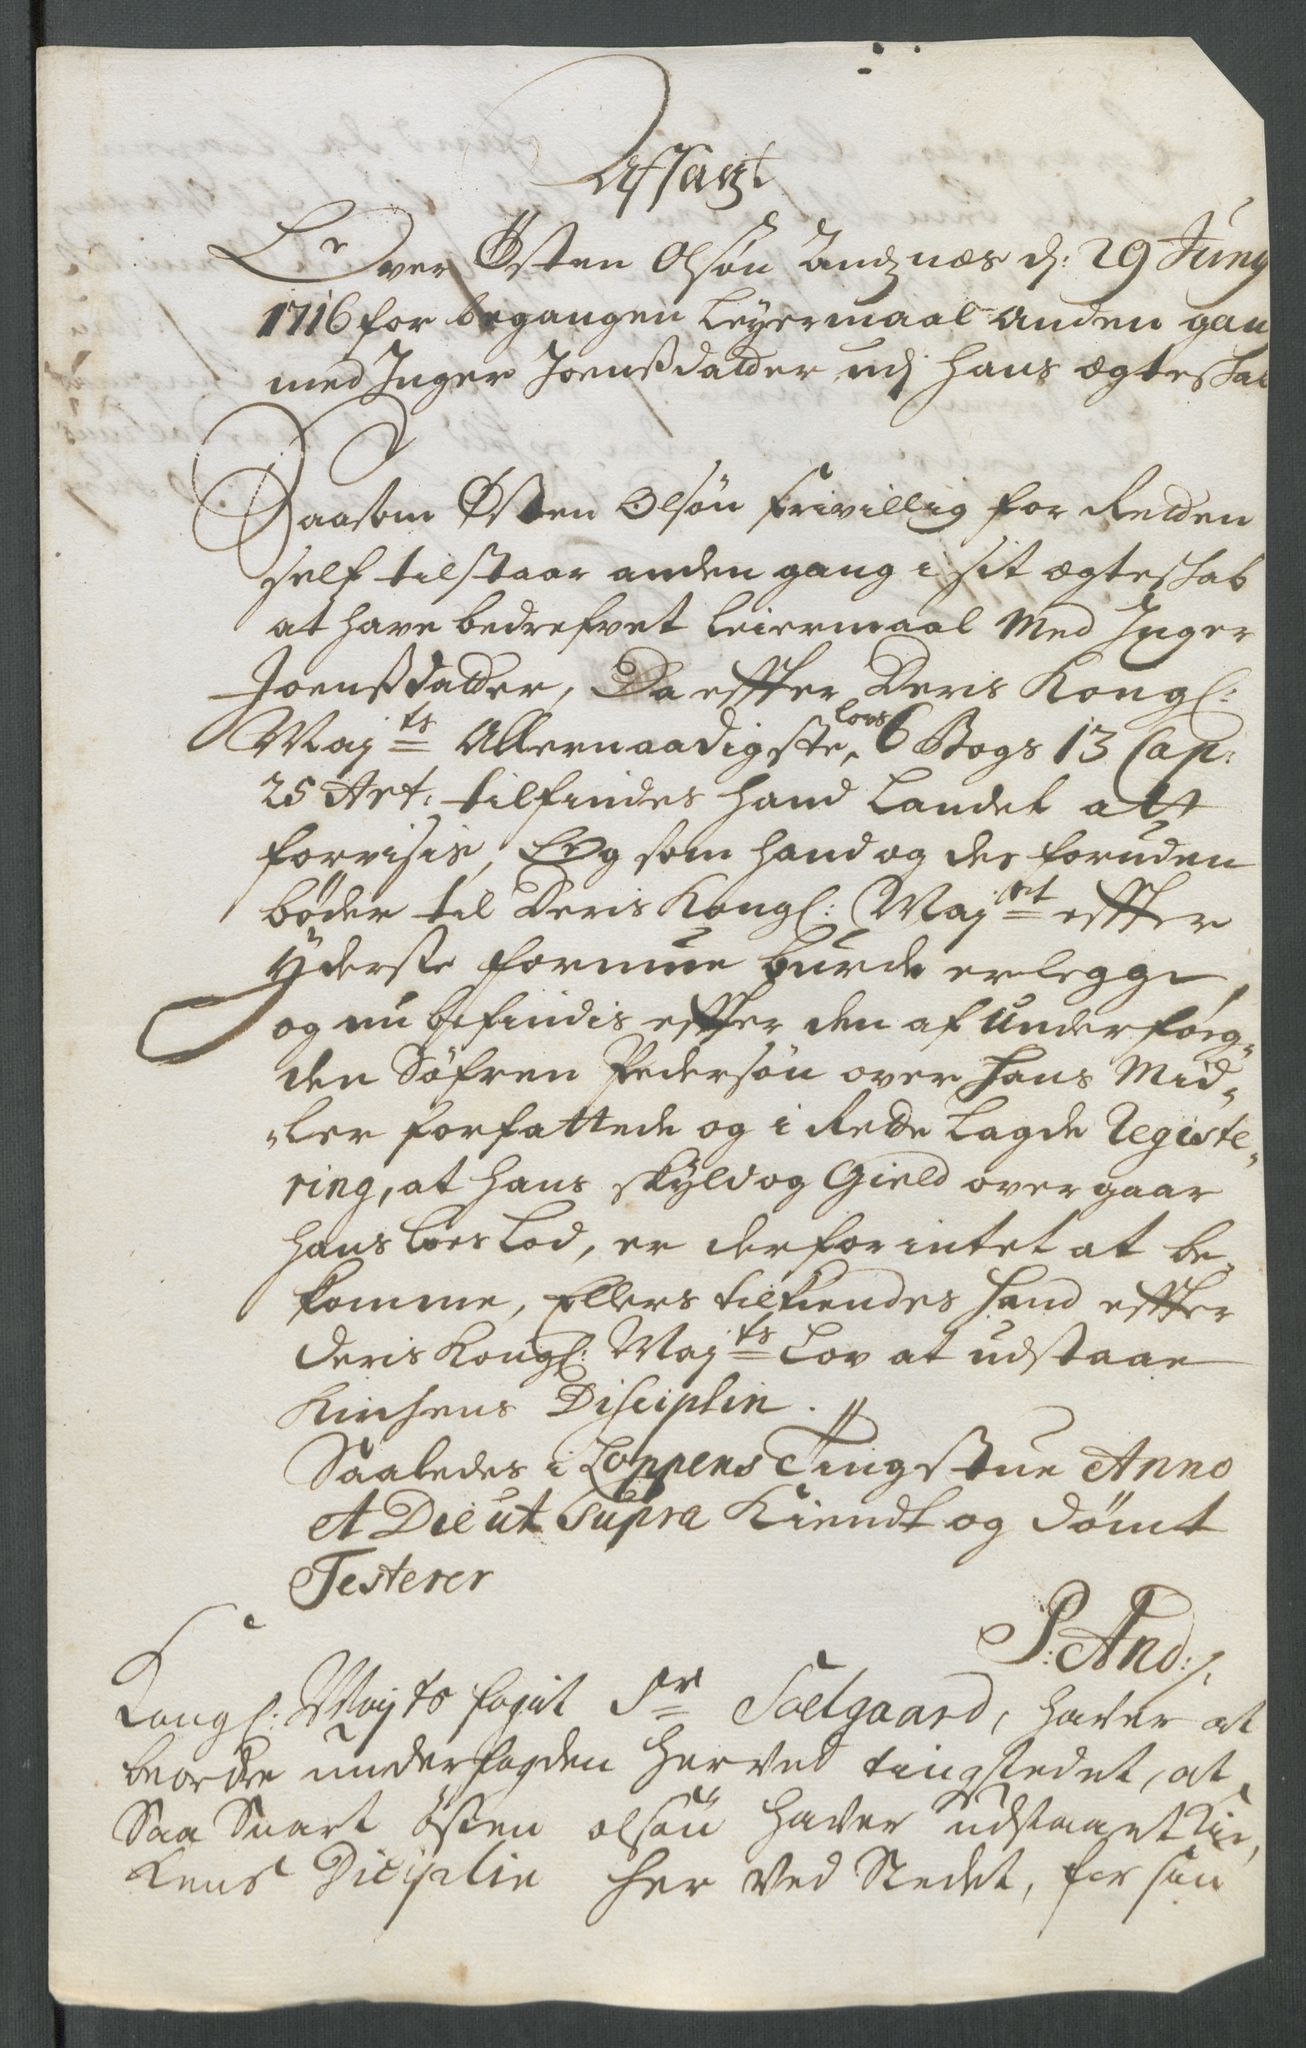 Afsagt
Over Østen Olsøn Andznæs d: 29 Juny
1716 for begangen Leyermaal anden gan
med Inger Joensdatter udj hans ægteskab
Saasom Østen Olsøn frivillig for Retten
self tilstaar anden gang i sit ægteskab
at have bedrefvet leiermaal Med Inger
Joensdatter, Da effter Deris Kongl:
Majts Allernaadigste lovs 6 Bogs 13 Cap:
25 Art: tilfindes hand Landet att
forvisis, Og som hand og des foruden
bøder til Deris Kongl: Majet effter
Yderste formue burde erlegge
og nu befindis effter den af Underfog-
den Søfren Pedersøn over hans Mid-
-ler forfattede og i Rette Lagde Registe-
ring, at hans skyld og Gield overgaar
hans Boes Lod, er derfor intet at be-
komme, Ellers tilkiendes hand effter
Deris Kongl: Majts Lov at udstaae
Kirkens Disciplin.
Saaledes i Loppens Tingstue Anno
et Die ut supra Kiendt og dømt
Testerer
P: And:
Kongl: Majts fogit Sr Soelgaard, haver at
beordre underfogden herved tingstedet, at
saa snart østen olsøn haver udstaaet Kir-
kens Diciplin her ved Stedet, for sin